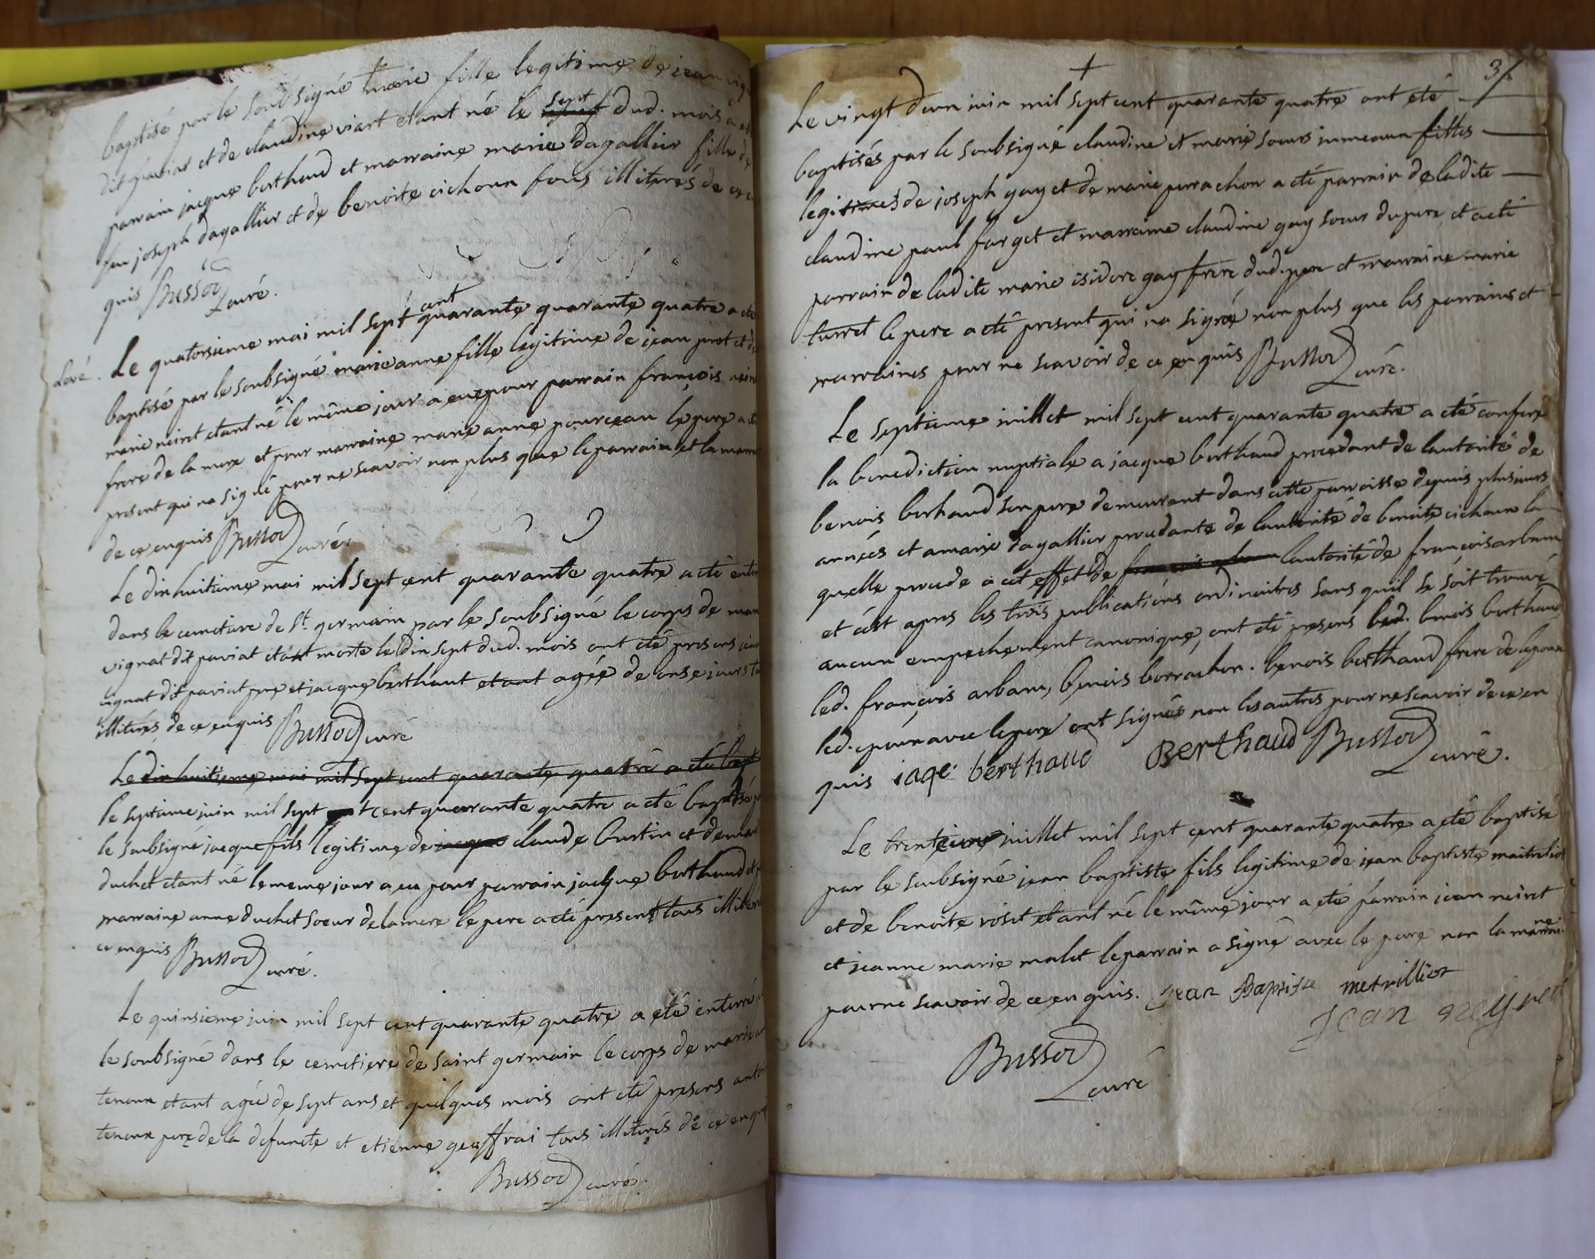 baptisé par le soubsigné marie fille legitime de jean
dit paviat et de claudine viart etant né le sept dud. mois a
parrain jacque berthaud et marraine marie dagallier fille de
feu joseph dagallier et de benoite cichoux tous illiterés de ce
quis Bussod curé.
Lové. Le quatorsieme mai mil sept cent quarante quarante quatre a eté
baptisé par le soubsigné marie anne fille legitime de jean prost et de
marie neiret etant né le même jour a eu pour parrain françois
frere de la mere et pour marraine marie anne pourceau le pere a eté
present qui na signé pour ne scavoir non plus que le parrain et la
de ce enquis Bussod curé.
Le dix huitieme mai mil sept cent quarante quatre a eté
dans le cemetiere de St. germain par le soubsigné le corps de
vignat dit paviat etant morte le dix sept dud. mois ont eté presens
vignat dit paviat pere et jacque berthaut etant agée de onse jours
illiteres de ce enquis Bussod curé
Le dix huitieme mai mil sept cent quarante quatre a eté bapt
le septieme juin mil sept cent quarante quatre a eté baptisé
le soubsigné jacque fils legitime de claude burtin et de
duchet etant né le meme jour a eu pour parrain jacque berthaud et
marraine anne duchet soeur de la mere le pere a eté present tous
ce enquis Bussod curé.
Le quinsieme juin mil sept cent quarante quatre a eté enterré
le soubsigné dans le cemetiere de saint germain le corps de marie
tenoux etant agée de sept ans et quelques mois ont eté presens
tenoux pere de la defuncte et etienne geoffrai tous illiterés de ce
Bussod curé.
3/.
Le vingt d'un juin mil sept cent quarante quatre ont eté
baptisés par le soubsigné claudine et marie soeurs jumeaux filles
legitimes de joseph gay et de marie perrachon a eté parrain de ladite
claudine paul farget et marraine claudine gay soeur du pere, et a eté
parrain de ladite marie isidore gay frere dud. pere et marraine marie
turret le pere a eté present qui na signé non plus que les parrains et
marraines pour ne scavoir de ce enquis Bussod curé.
Le septieme juillet mil sept cent quarante quatre a eté conferé
la benediction nuptiale a jacque berthaud procedant de lautorité de
benois berthaud son pere demeurant dans cette parroisse depuis plusieurs
années et a marie dagallier procedante de lautorité de benoite cichoux la
quelle procede a cet effet de lautorité de françois arban
et c'est apres les trois publications ordinaires sans quil se soit trouvé
aucun empechement canonique, ont eté presens led. benois berthaud
led. françois arban, benois borrachon. benois berthaud frere de lepoux
led. epoux avec le pere ont signés non les autres pour ne scavoir de ce en
quis iaqe berthaud Berthaud Bussod curé.
Le trentieme juillet mil sept cent quarante quatre a eté baptisé
par le soubsigné jean baptiste fils legitime de jean baptiste
et de benoite roset etant né le même jour a eté parrain jean neiret
et jeanne marie malet le parrain a signé avec le pere non la marraine
pour ne scavoir de ce enquis. jean Baptiste metrilliot
jean neyret
Bussod
curé